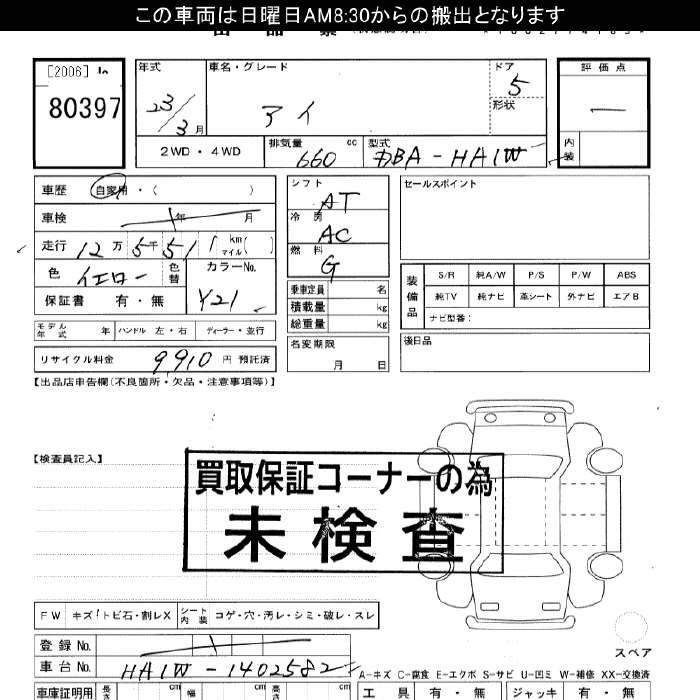 この車両は日曜日AM8:30からの搬出となります
[2006]
80397
年式
23/3月
車名・グレード
アイ
ドア
5
形状
評価点
内装
2WD・4WD
排気量 660 cc
型式 DBA-HA1W
車歴 自家用・( )
車検 年 月
走行 12万5千51 km マイル( )
色 イエロー 色替
カラーNo. Y21
保証書 有・無
シフト AT
冷房 AC
燃料 G
乗車定員 名
積載量 kg
総重量 kg
セールスポイント
装備品
S/R 純A/W P/S P/W ABS
純TV 純ナビ 革シート 外ナビ エアB
ナビ型番:
モデル年式 年 ハンドル 左・右 ディーラー・並行
リサイクル料金 9910 円 預託済
名変期限 月 日
後日品
【出品店申告欄(不良箇所・欠品・注意事項等)】
【検査員記入】
買取保証コーナーの為
未検査
FW キズ/トビ石・割レX シート内装 コゲ・穴・汚レ・シミ・破レ・スレ
スペア
登録No.
車台No. HA1W-1402582
A-キズ C-腐食 E-エクボ S-サビ U-凹ミ W-補修 XX-交換済
車庫証明用 長さ cm 幅 cm 高さ cm
工具 有・無 ジャッキ 有・無